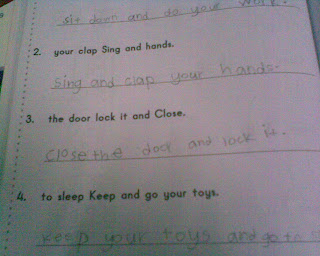 sit down and do your work.
2. your clap Sing and hands.
sing and clap your hands.
3. the door lock it and Close.
Close the door and lock it.
4. to sleep Keep and go your toys.
keep your toys and go to